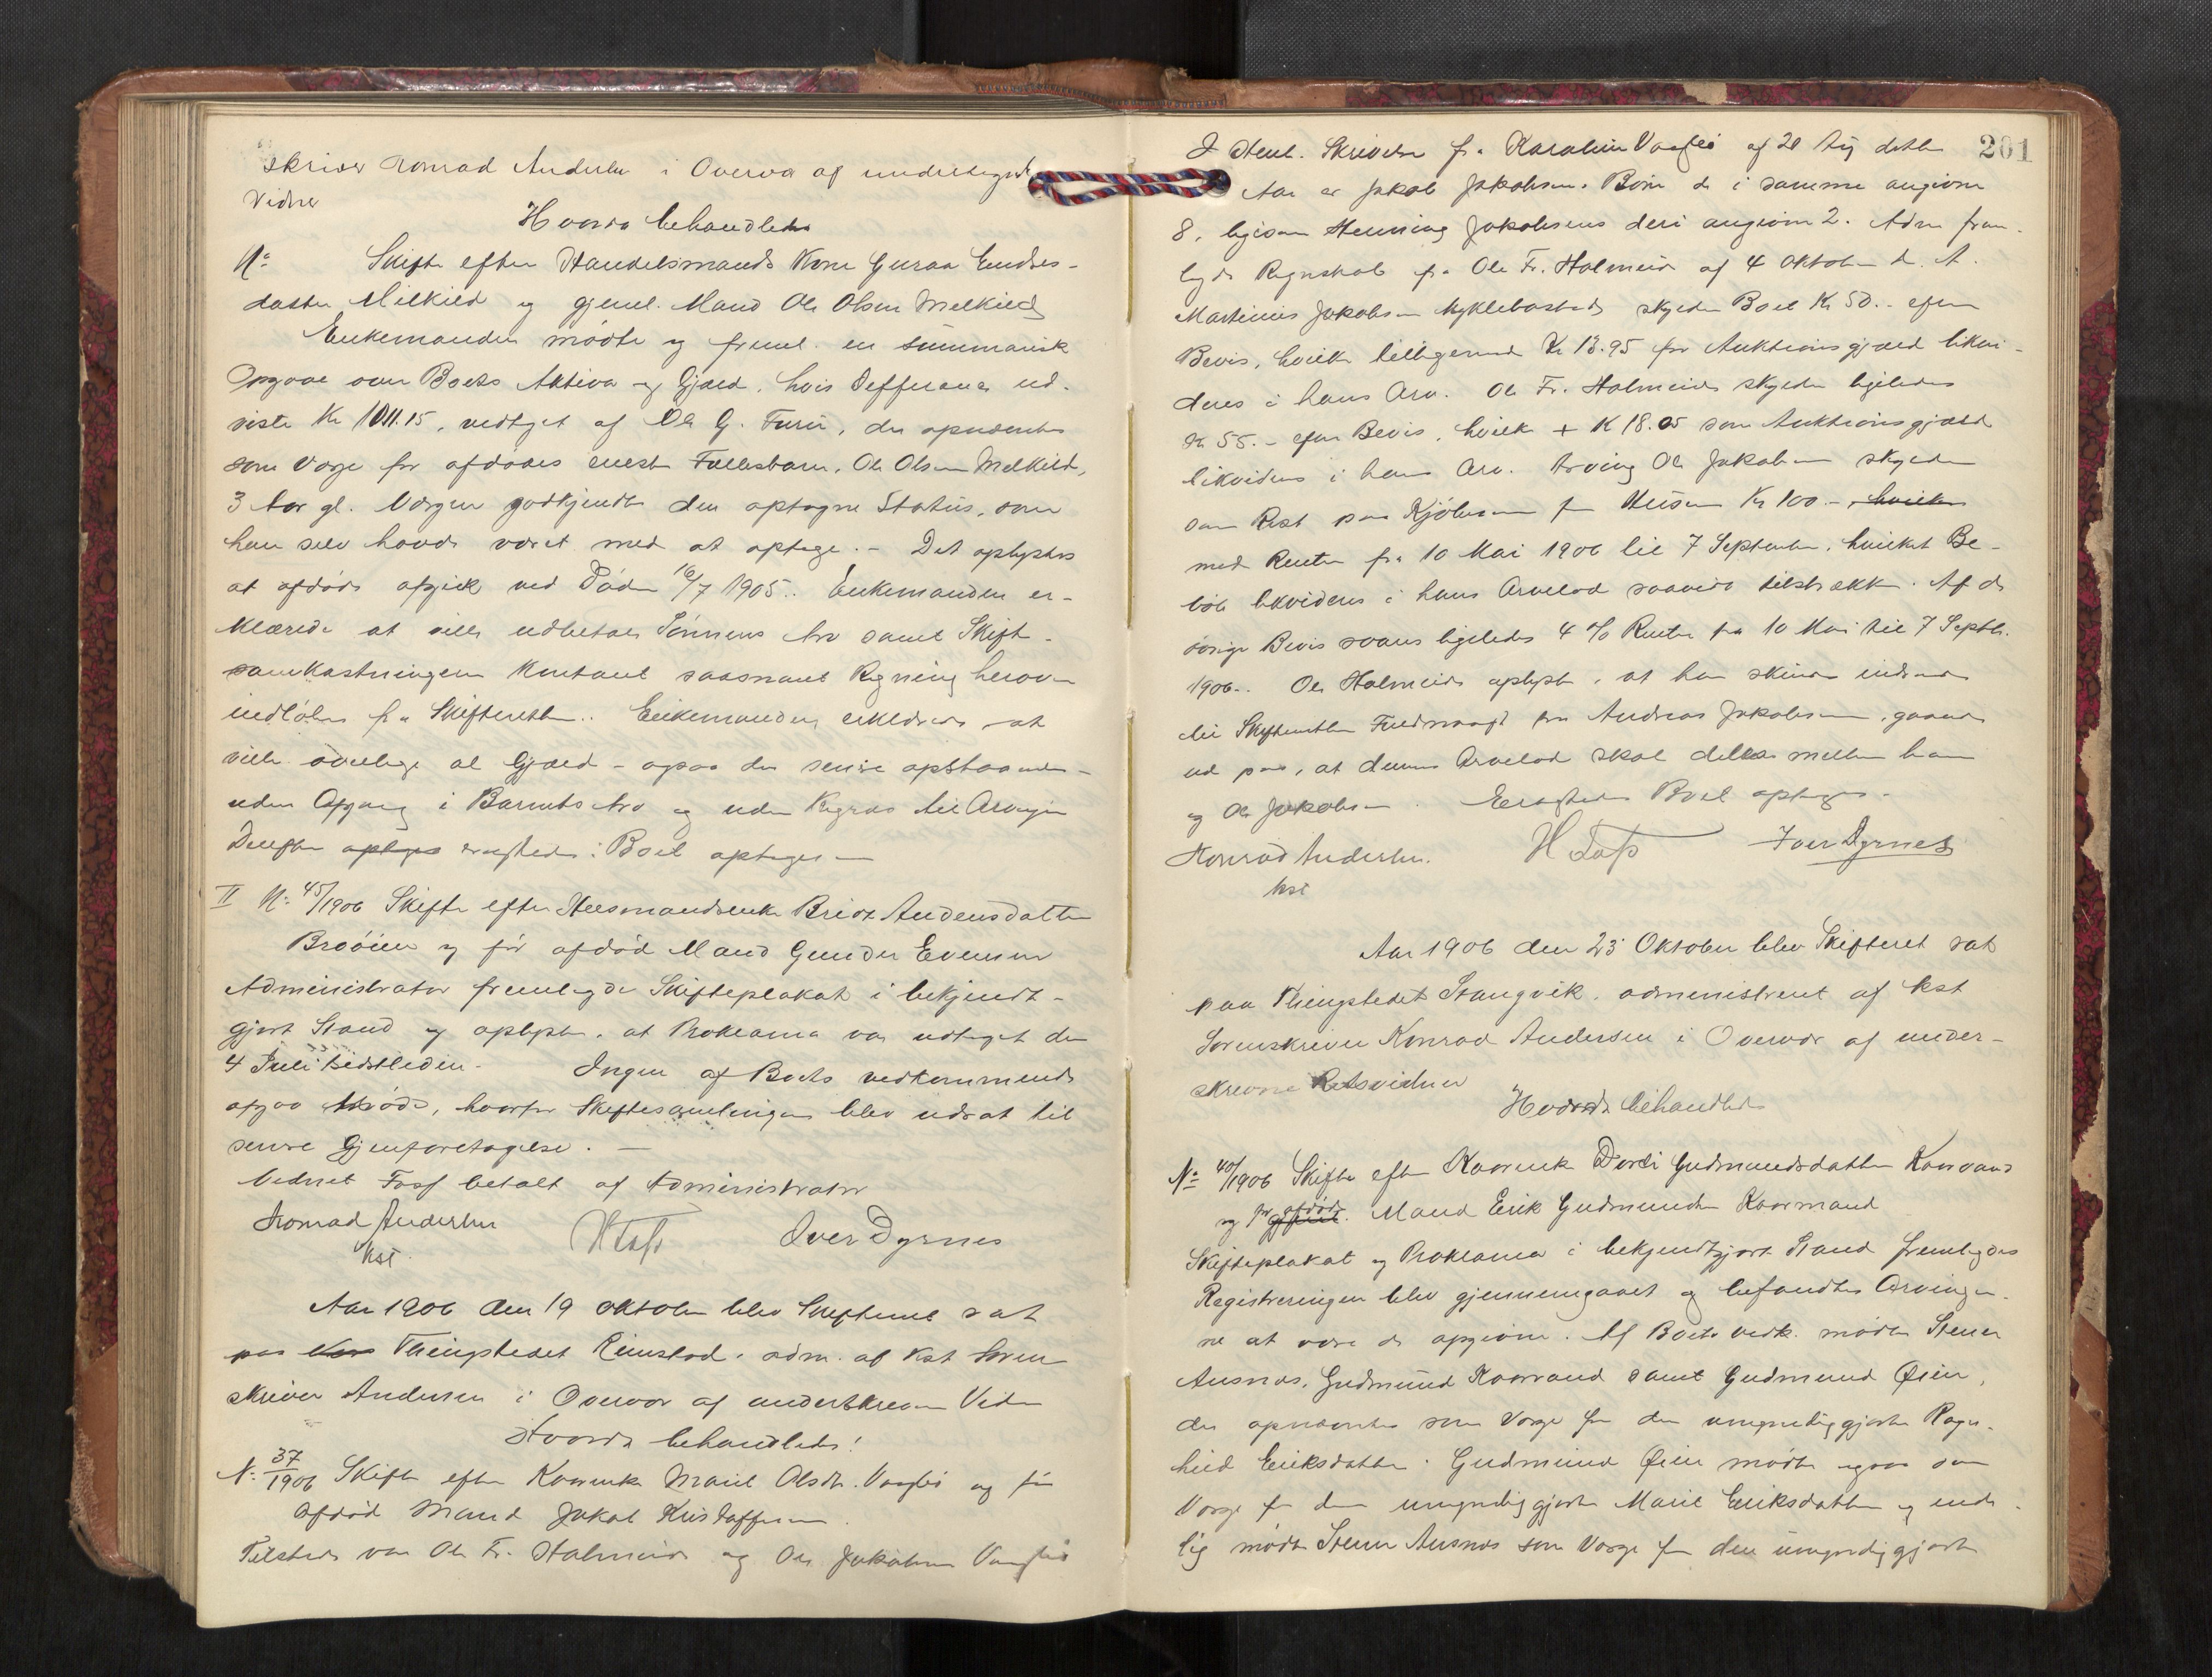 skriver Konrad Andersen i Overvær af undertegnede
Vidner
Hvorda behandledes
No Skifte efter Handelsmands Kone Guraa Endres-
datter Melkild og gjenl. Mand Ole Olsen Melkild
Enkemanden mødte og freml. en summarisk
Opgave over Boets Aktiva og Gjæld, hvis Differance ud-
viste Kr 1011.15, vedtaget af Ole G. Furu, der opnævntes
som Værge for afdødes eneste Fællesbarn, Ole Olsen Melkild,
3 Aar gl. Værgen godkjendte den optagne Status, som
han selv havde været med at optage. - Det oplystes
at afdøde afgik ved Døden 16/7 1905.. Enkemanden er-
klærede at ville udbetale Sønnens Arv samt Skifte-
omkostningerne kontant saasnart Regning herover
indløber fra Skifteretten.. Enkemanden erklærede at
ville overtage al Gjæld - ogsaa den senere opstaaende -
uden Afgang i Barnets Arv og uden Regres til Arvingen
Derefter optages eragtedes: Boet optages -
II No 45/1906 Skifte efter Husmandsenke Brit Andersdatter
Brøøien og før afdød Mand Gunder Evensen
Administrator fremlagde Skifteplakat i bekjendt-
gjort Stand og oplyste, at Proklama var udtaget den
4 Juli sidstleden. Ingen af Boets vedkommende
afgav Møde, hvorfor Skiftesamlingen blev udsat til
senere Gjenforetagelse. -
Vidnet Tass betalt af Administrator
Konrad Andersen H Tass Iver Dyrnes
kst.
Aar 1906 den 19 Oktober blev Skifteret sat
paa Thingstedet Rimstad, adm. af kst Soren-
skriver Andersen i Overvær af underskrevne Vidner
Hvorda behandledes:
No 37/1906 Skifte efter Kaarenke Marit Olsdtr. Vaagbø og før
afdød Mand Jakob Kristoffersen.
Tilstede var Ole Fr. Halmeide og Ole Jakobsen Vaagbø
201
I Henh. Skrivelse fra Karoline Vaagbø af 28 Aug dette
Aar er Jakob Jakobsens Børn de i samme angivne
8, ligesom Henning Jakobsens deri angivne 2. Adm. frem-
lagde Regnskab fra Ole Fr. Halmeide af 4 Oktober d. A.
Martinus Jakobsen Myklebostad skylder Boet Kr 50.- efter
Bevis, hvilke tilligemed Kr 13.95 for Auktionsgjæld likvi-
deres i hans Arv. Ole Fr. Halmeide skylder ligeledes
Kr 55.- efter Bevis, hvilke + Kr 18.05 som Auktionsgjæld
likvideres i hans Arv. Arving Ole Jakobsen skylder
som Rest paa Kjøbesum for Husene Kr 100.-, hvilke
med Renter fra 10 Mai 1906 til 7 September, hvilket Be-
løb likvideres i hans Arvelod saavidt tilstrækk. Af de
øvrige Bevis svares ligeledes 4 % Rente fra 10 Mai til 7 Septbr.
1906.. Ole Halmeide oplyste, at han skulde indsende
til Skifteretten Fuldmagt fra Andreas Jakobsen, gaaende
ud paa, at dennes Arvelod skal deles mellem ham
og Ole Jakobsen. Eragtedes Boet optages.-
Konrad Andersen. H Tass Iver Dyrnes
kst
Aar 1906 den 23 Oktober blev Skifteret sat
paa Thingstedet Stangvik, administreret af kst
Sorenskriver Konrad Andersen i Overvær af under-
skrevne Retsvidner
Hvorda behandledes
No 40/1906 Skifte efter Kaarenke Dordi Gudmundsdatter Kaarvand
og før afdøde Mand Erik Gudmundsen Kaarvand
Skifteplakat og Proklama i bekjendtgjort Stand fremlagdes
Registreringen blev gjennemgaaet og befandtes Arvinger-
ne at være de opgivne. Af Boets vedk. mødte Stener
Ansnes, Gudmund Kaarvand samt Gudmund Øien,
der opnævntes som Værge for den umyndiggjorte Ragn-
hild Eriksdatter. Gudmund Øien mødte ogsaa som
Værge for den umyndiggjorte Marit Eriksdatter og ende-
lig mødte Stener Ansnes som Værge for den umyndiggjorte